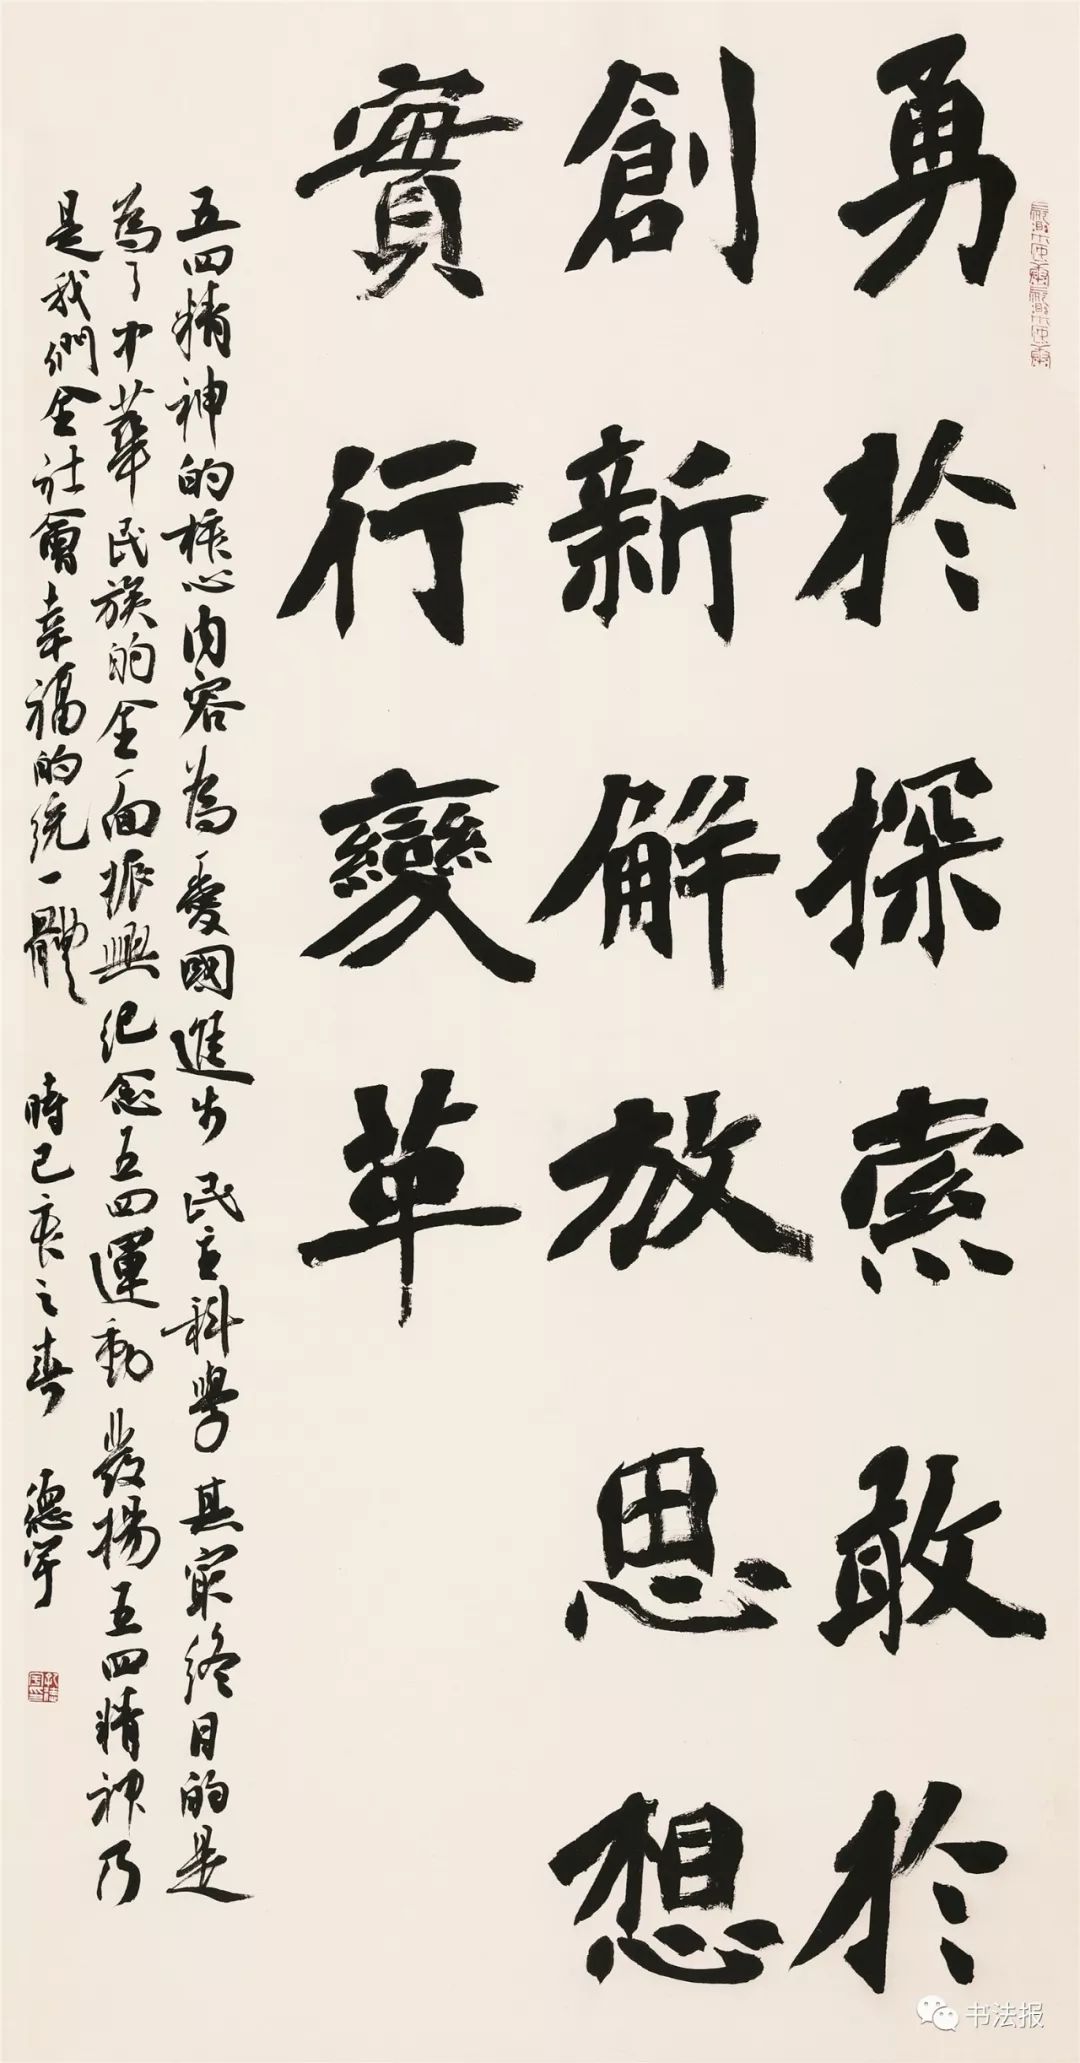 勇於探索敢於
創新解放思想
實行變革
五四精神的核心内容為愛國進步民主科學其最終目的是
為了中華民族的全面振興紀念五四運動發揚五四精神乃
是我們全社會幸福的統一體 時己亥之春 德宇
书法报